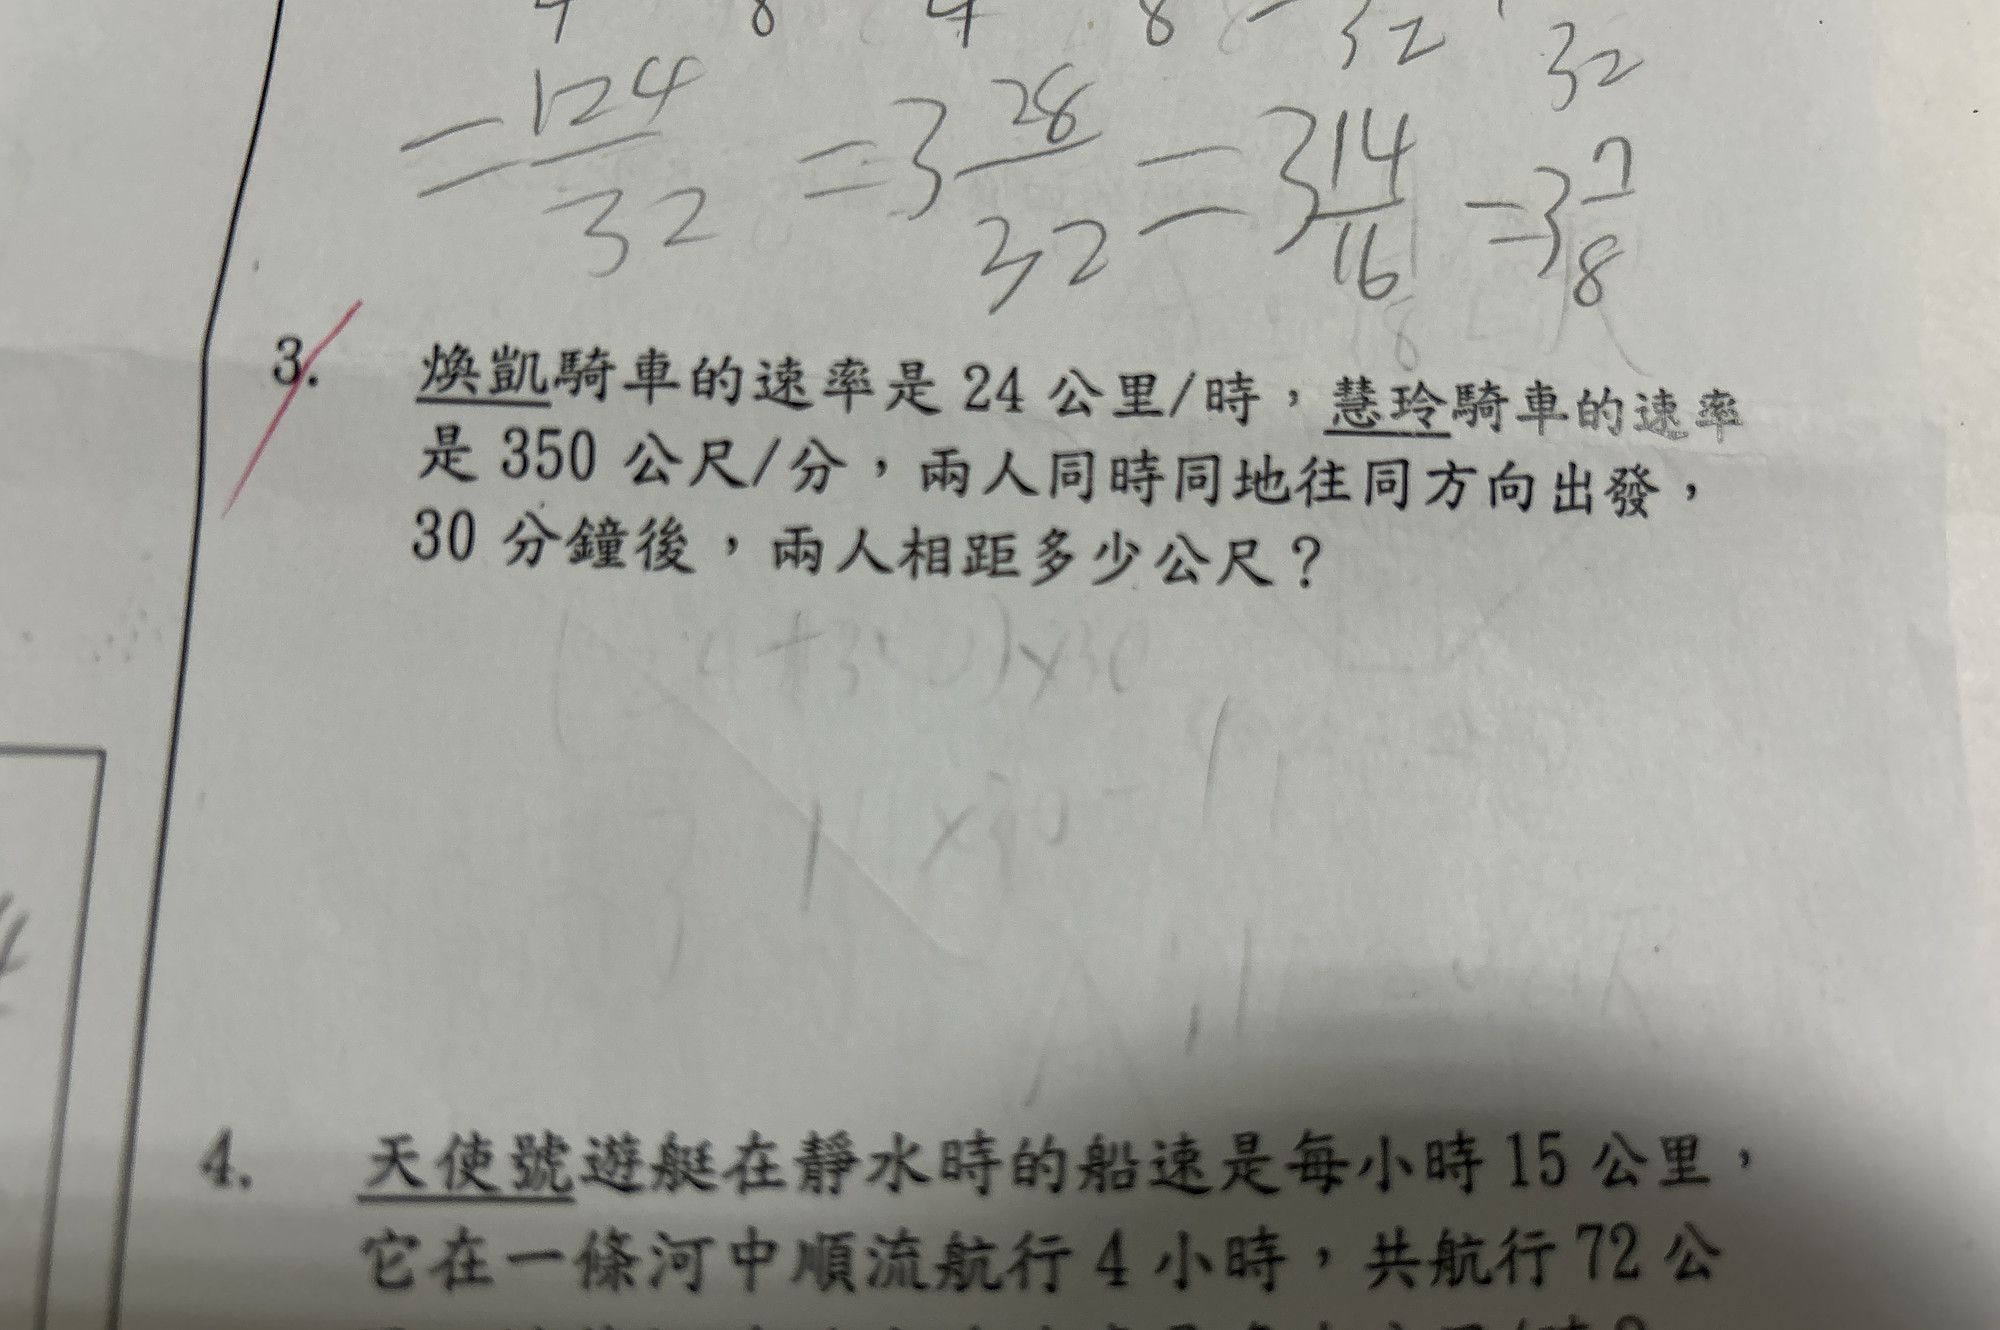 4 8 4 8 32 32
= 124/32 = 3 28/32 = 3 14/16 = 3 7/8
3. 煥凱騎車的速率是 24 公里/時，慧玲騎車的速率
是 350 公尺/分，兩人同時同地往同方向出發，
30 分鐘後，兩人相距多少公尺？
4+350)×30
×30
4. 天使號遊艇在靜水時的船速是每小時 15 公里，
它在一條河中順流航行 4 小時，共航行 72 公